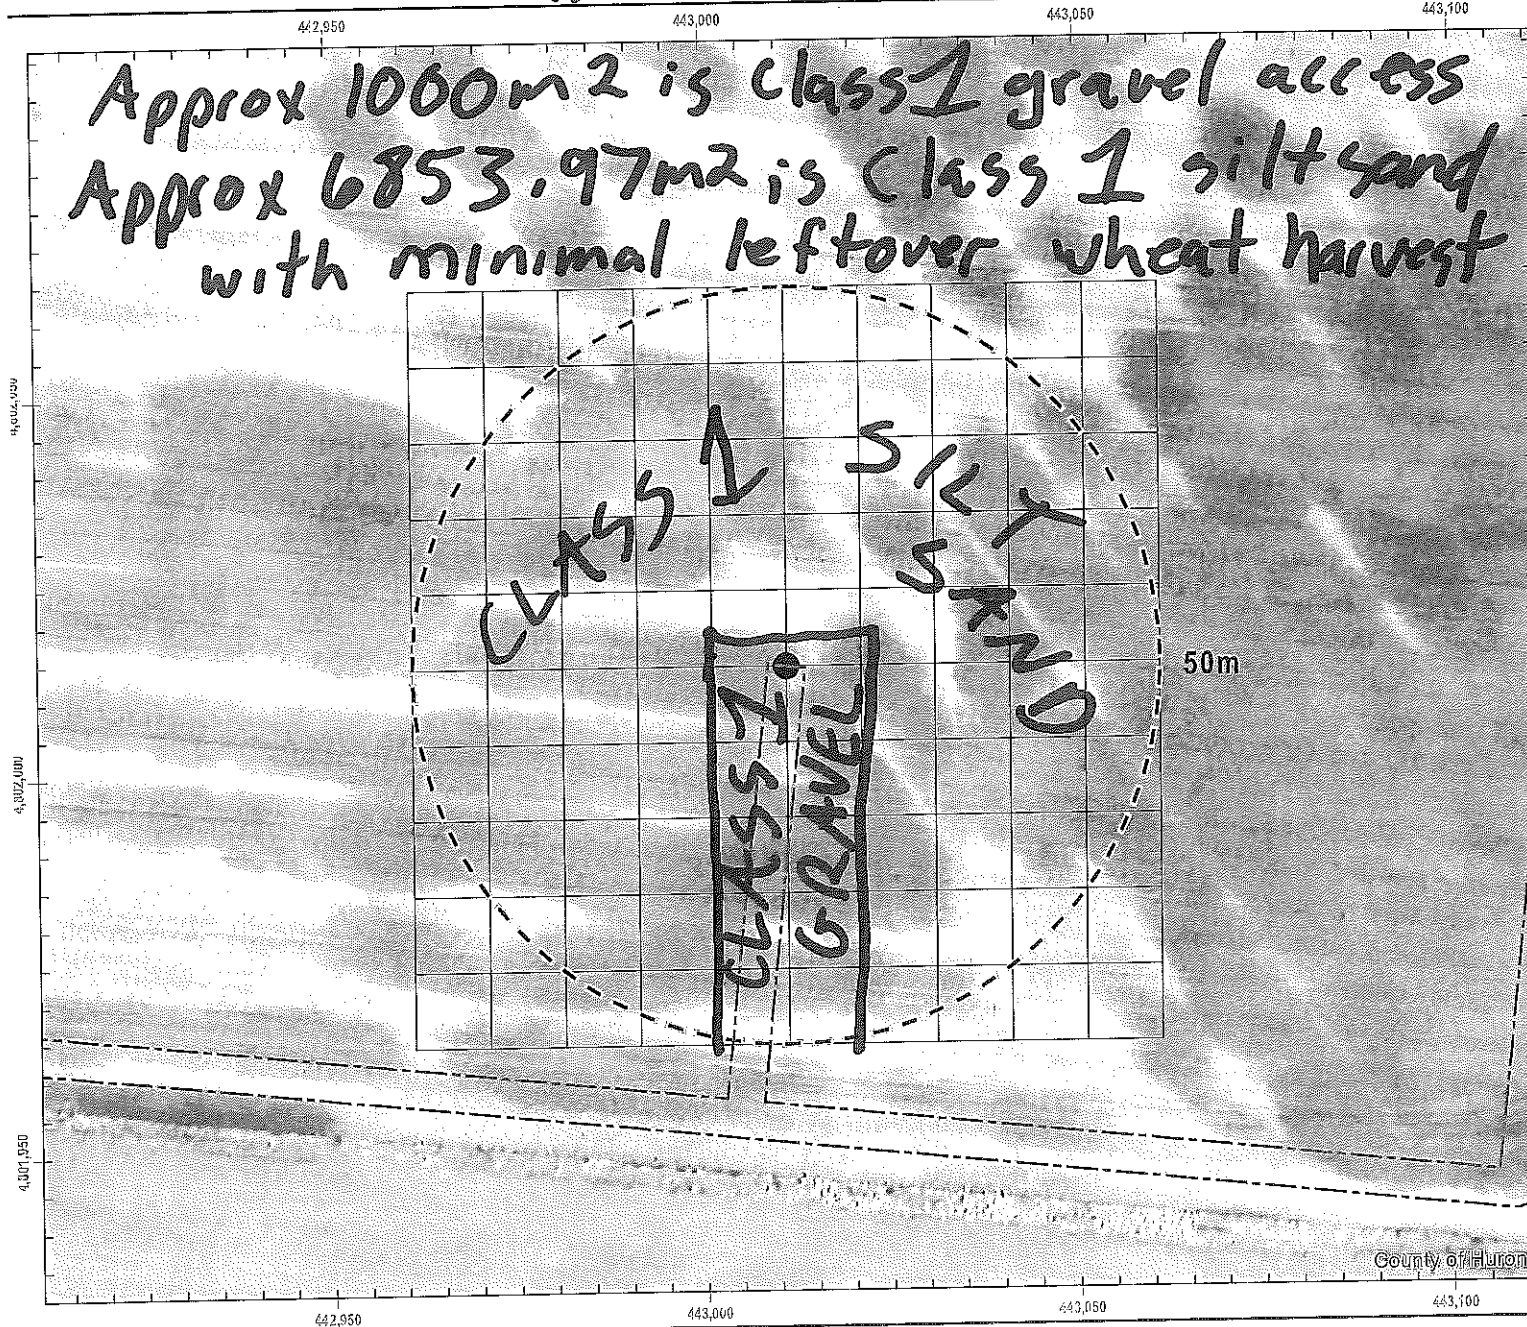 442,950 443,000 443,050 443,100
Approx 1000m2 is Class 1 gravel access
Approx 6853.97m2 is Class 1 silt sand
with minimal leftover wheat harvest
CLASS 1
SAND
50m
CLASS 1
GRAVEL
4,802,000
4,801,950
County of Huron
442,950 443,000 443,050 443,100